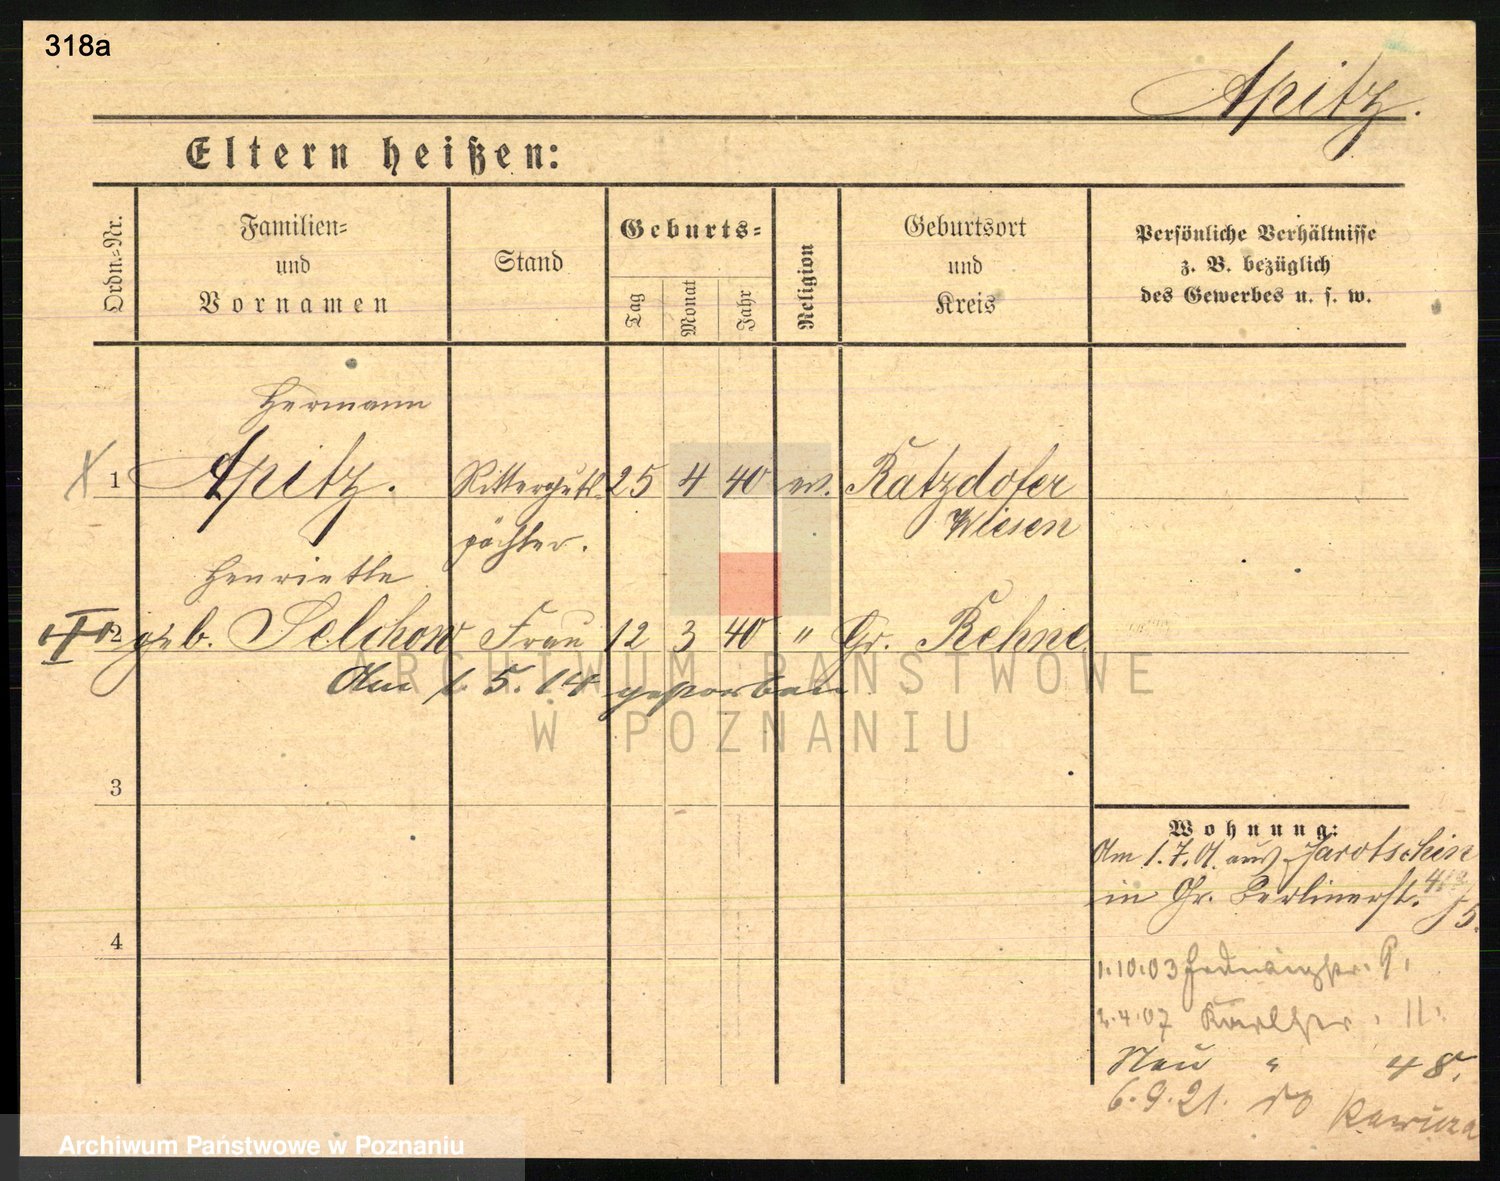 318a
Apitz.
Eltern heißen:
Ordn.-Nr.
Familien-
und
Vornamen
Stand
Geburts-
Tag
Monat
Jahr
Religion
Geburtsort
und
Kreis
Persönliche Verhältnisse
z. B. bezüglich
des Gewerbes u. s. w.
Hermann
1 Apitz. Ritterguts- 25 4 40 ev. Katzdofer
pächter. Wiesen
Henriette
2 geb. Selchow Frau 12 3 40 " Gr. Rehne
Am 1.5.14 gestorben
3
4
Wohnung:
Am 1.7.01. aus Jarotschin
in Gr. Berlinerst.
1.10.03 9.
2.4.07 11.
Neu " 48.
6.9.21. do Rawicza
ARCHIWUM PAŃSTWOWE
W POZNANIU
Archiwum Państwowe w Poznaniu